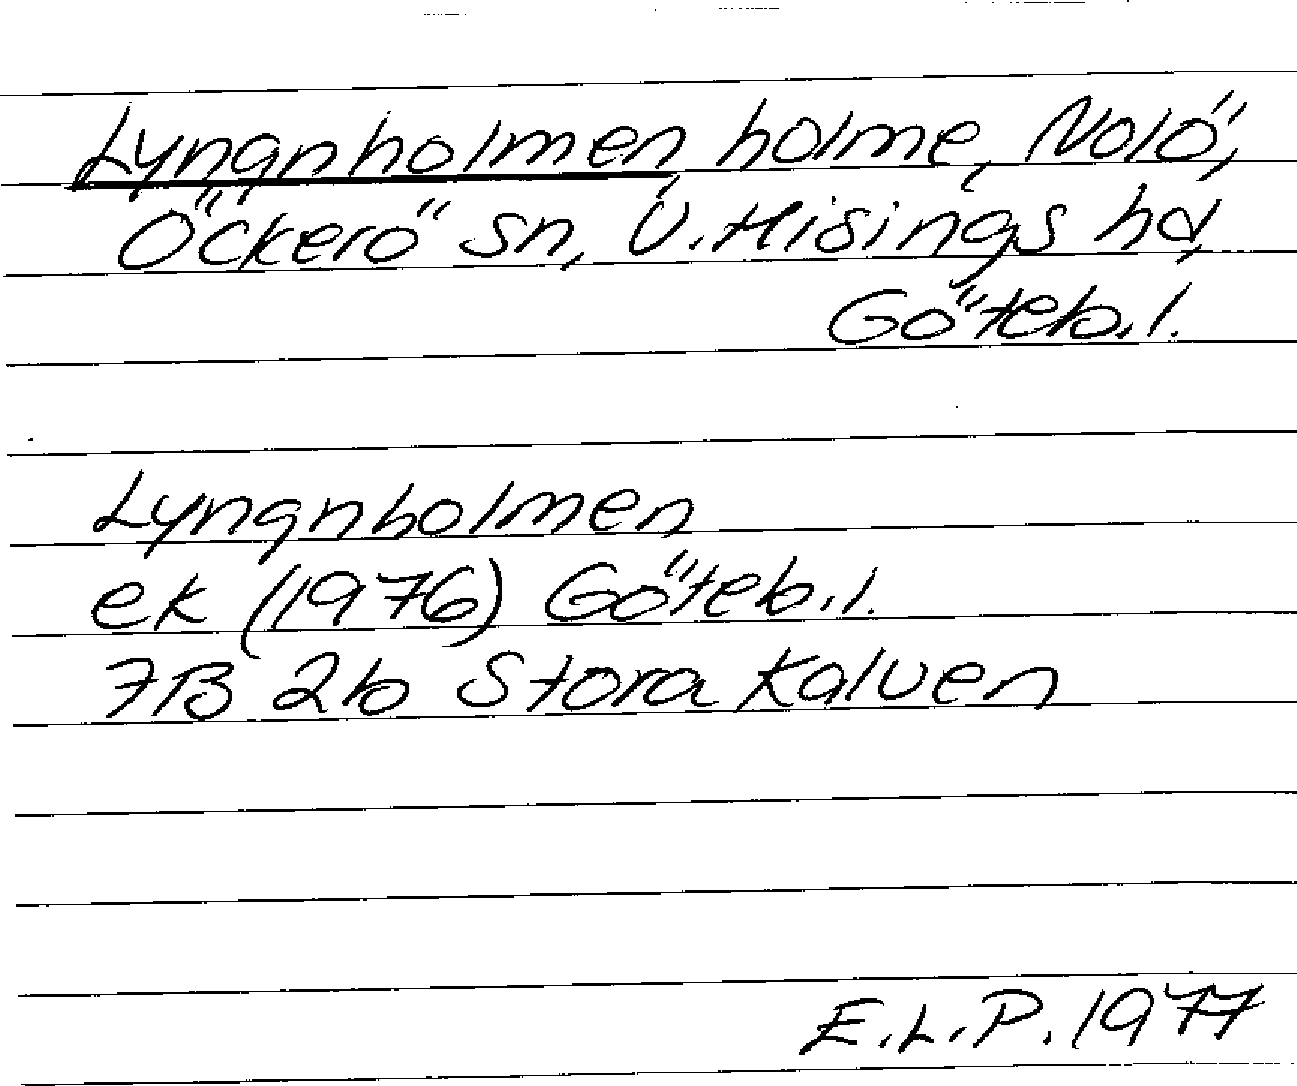 Lyngnholmen holme, Nolö,
Öckerö sn, V. Hisings hd,
Göteb. l.
Lyngnholmen
ek (1976) Göteb. l.
7B 2b Stora Kalven
E.L.P. 1977